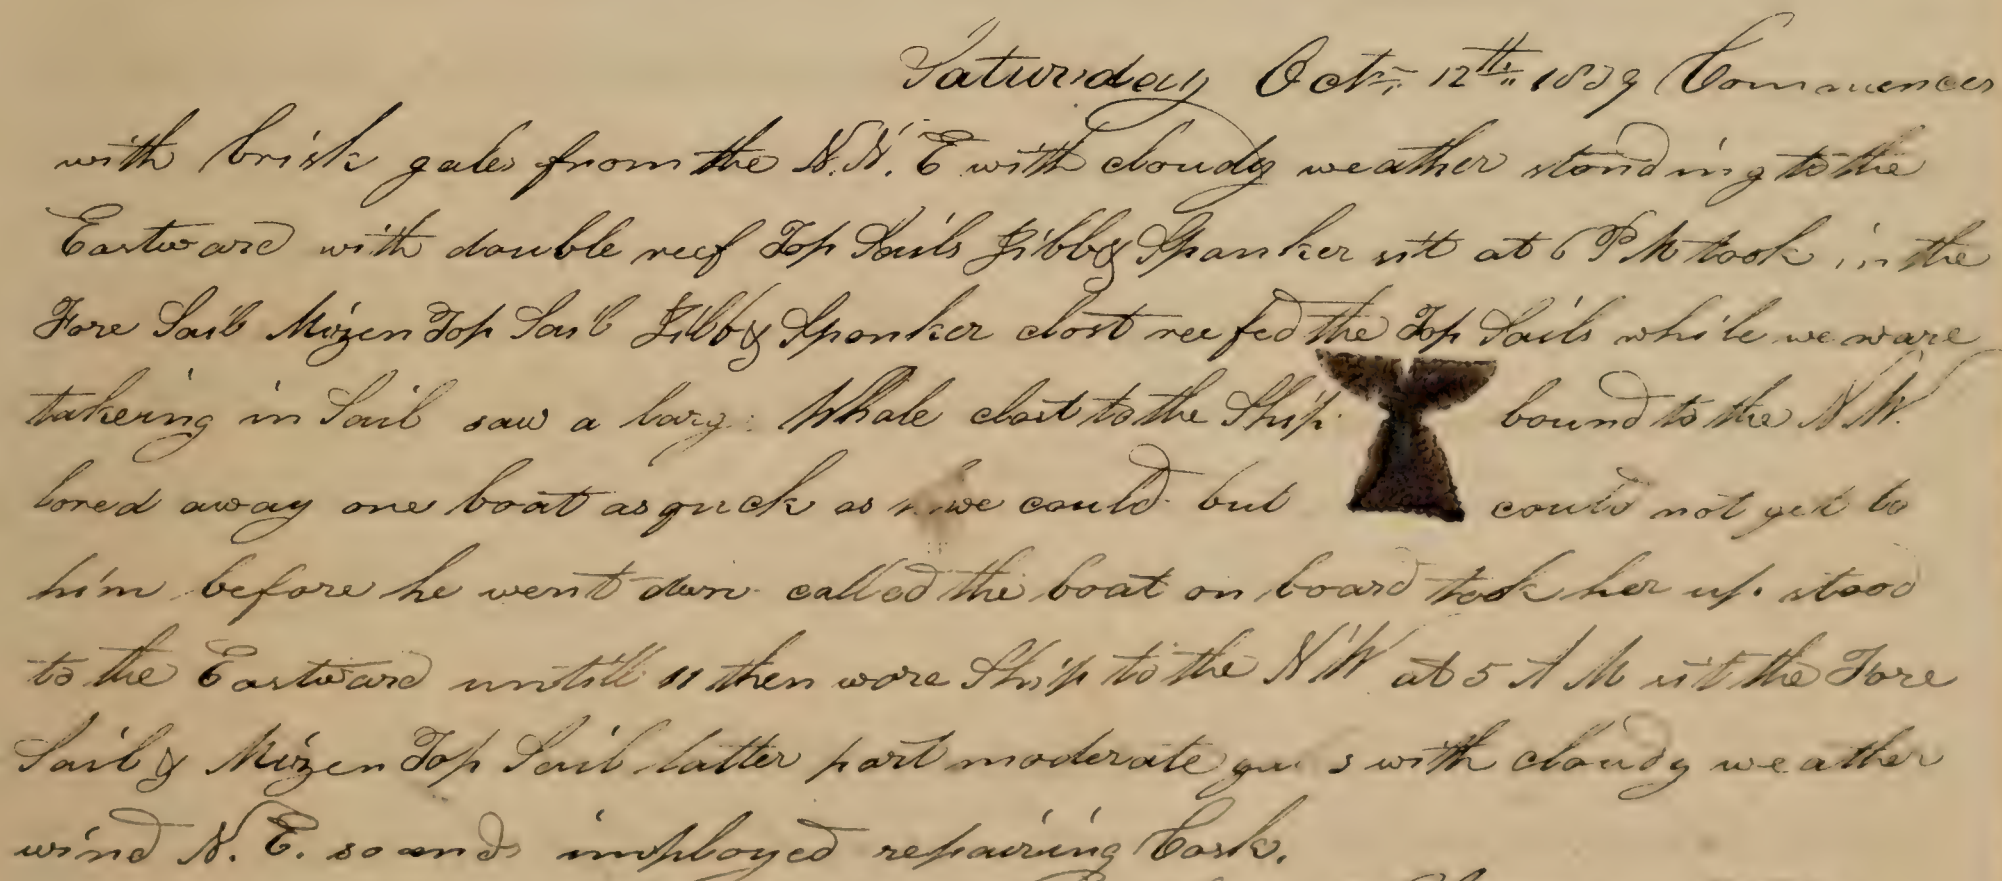 Saturday Oct. 12th 1839 Commences
with brisk gales from the N.N.E with cloudy weather standing to the
Eastward with double reef Top Sails Jibb & Spanker sit at 6 P M took in the
Fore Sail Mizen Top Sail Jibb & Spanker clost reefed the Top Sails while we ware
takeing in Sail saw a larg Whale clost to the Ship bound to the N W.
lored away one boat as quick as we could but could not get to
him before he went down called the boat on board took her up. stood
to the Eastward untill 11 then wore Ship to the N W at 5 A M sit the Fore
Sail & Mizen Top Sail latter part moderate gales with cloudy weather
wind N. E. so ends imployed repairing Cask.